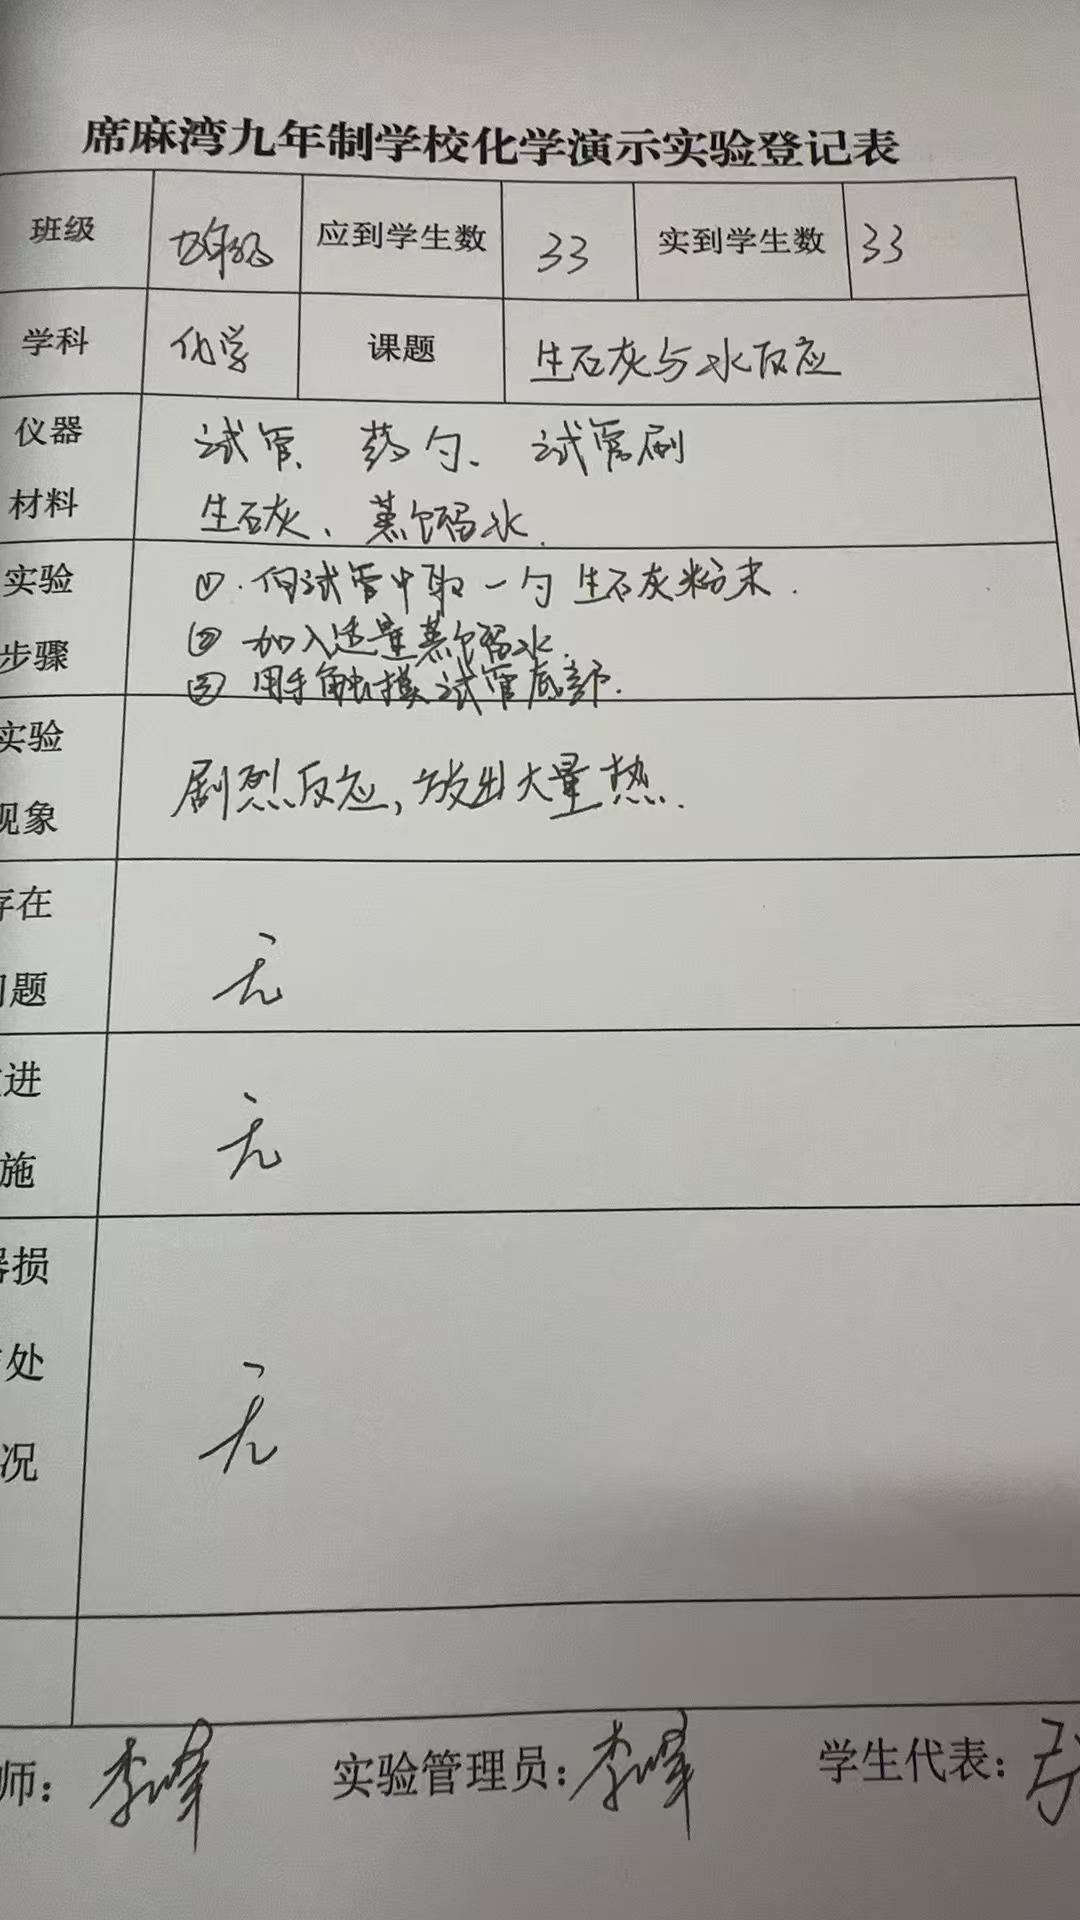 席麻湾九年制学校化学演示实验登记表
班级 九年级 应到学生数 33 实到学生数 33
学科 化学 课题 生石灰与水反应
仪器 试管、药勺、试管刷
材料 生石灰、蒸馏水.
实验 ①.向试管中取一勺生石灰粉末.
② 加入适量蒸馏水.
步骤 ③ 用手触摸试管底部.
实验
现象 剧烈反应,放出大量热.
存在
问题 无
进
施 无
损
处 无
况
师:李峰 实验管理员:李峰 学生代表: